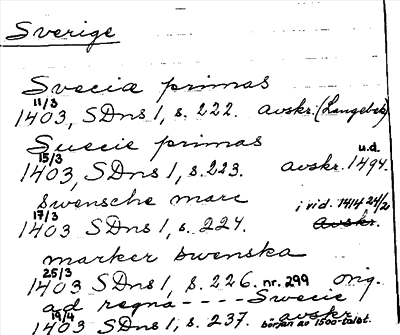 Sverige
Svecia primas
11/3
1403, SDns 1, s. 222. avskr. (Langebek)
Suecie primas u.d.
15/3
1403, SDns 1, s. 223. avskr. 1494.
swensche marc i vid. 1414 24/2
17/3
1403 SDns 1, s. 224. avskr.
marker swenska
25/3
1403 SDns 1, s. 226. nr. 299 orig.
ad regna - - - - Swecie
19/4
1403 SDns 1, s. 237. avskr. början av 1500-talet.